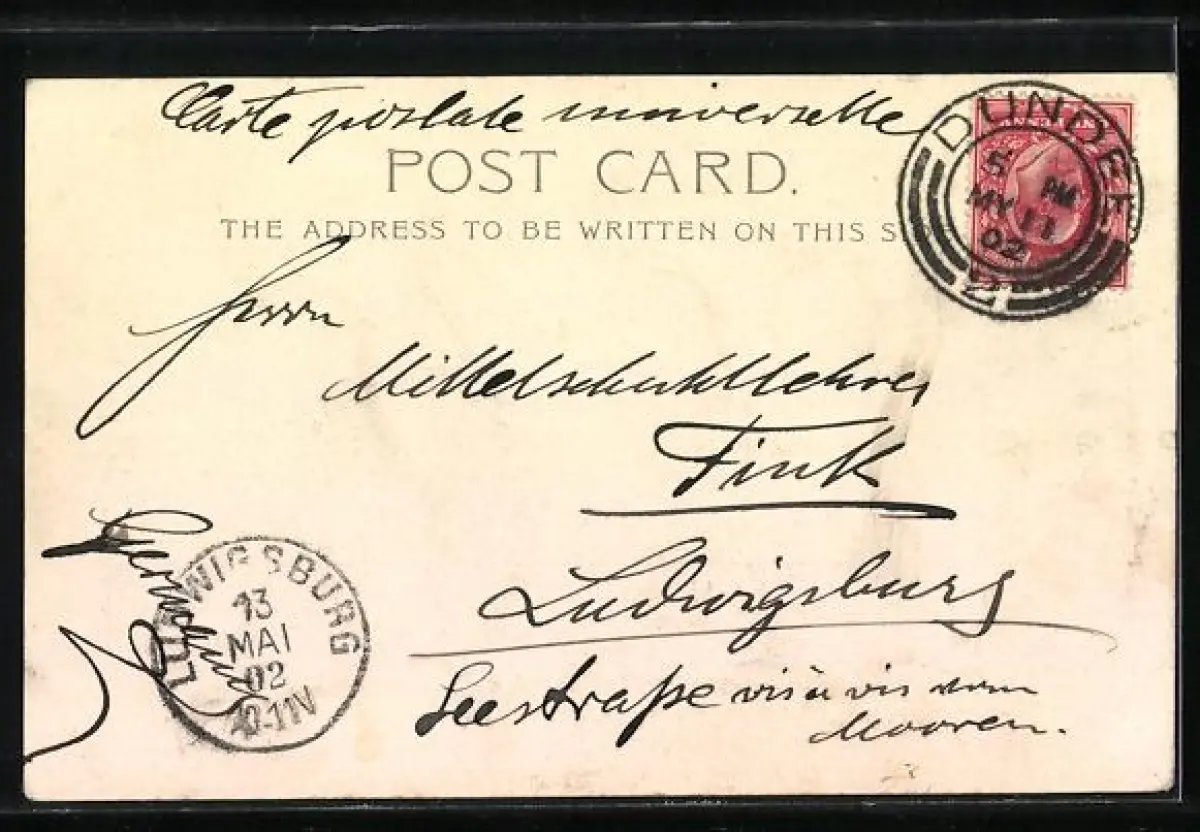 Carte postale universelle
POST CARD.
THE ADDRESS TO BE WRITTEN ON THIS S
DUNDEE
5 PM
MY 11
02
Herrn
Mittelschullehrer
Fink
Ludwigsburg
Seestraße vis à vis vom
Mooren.
LUDWIGSBURG
13
MAI
02
10-11V